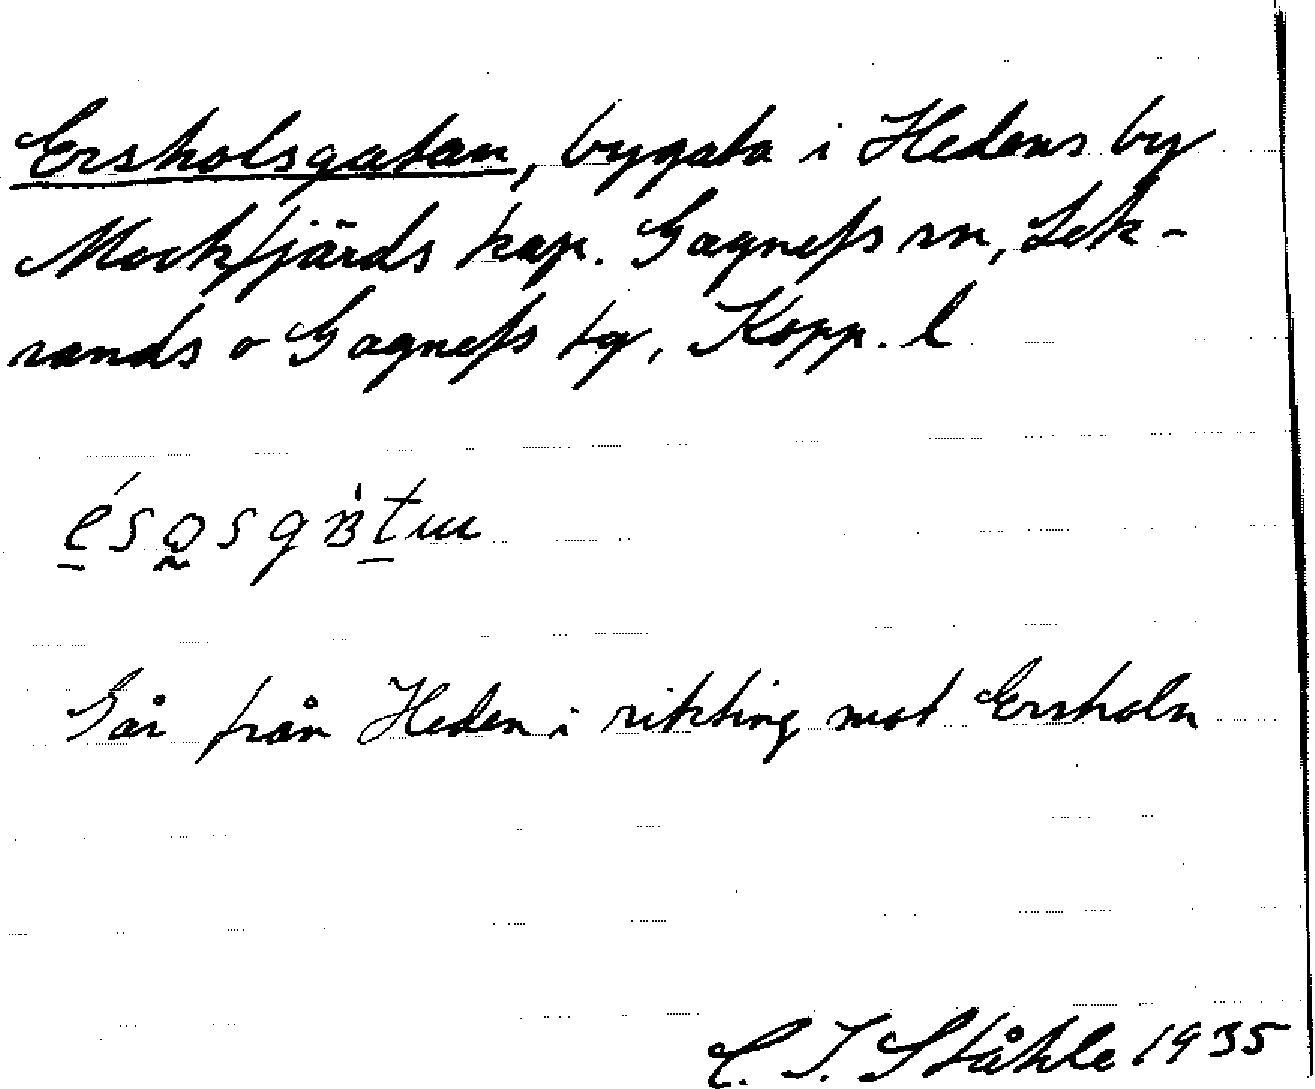 Ersholsgatan, bygata i Hedens by
Mockfjärds kap. Gagnefs sn, Lek-
sands o Gagnefs tg, Kopp. l
Går från Heden i riktning mot Ersholn
C. I. Ståhle 1935